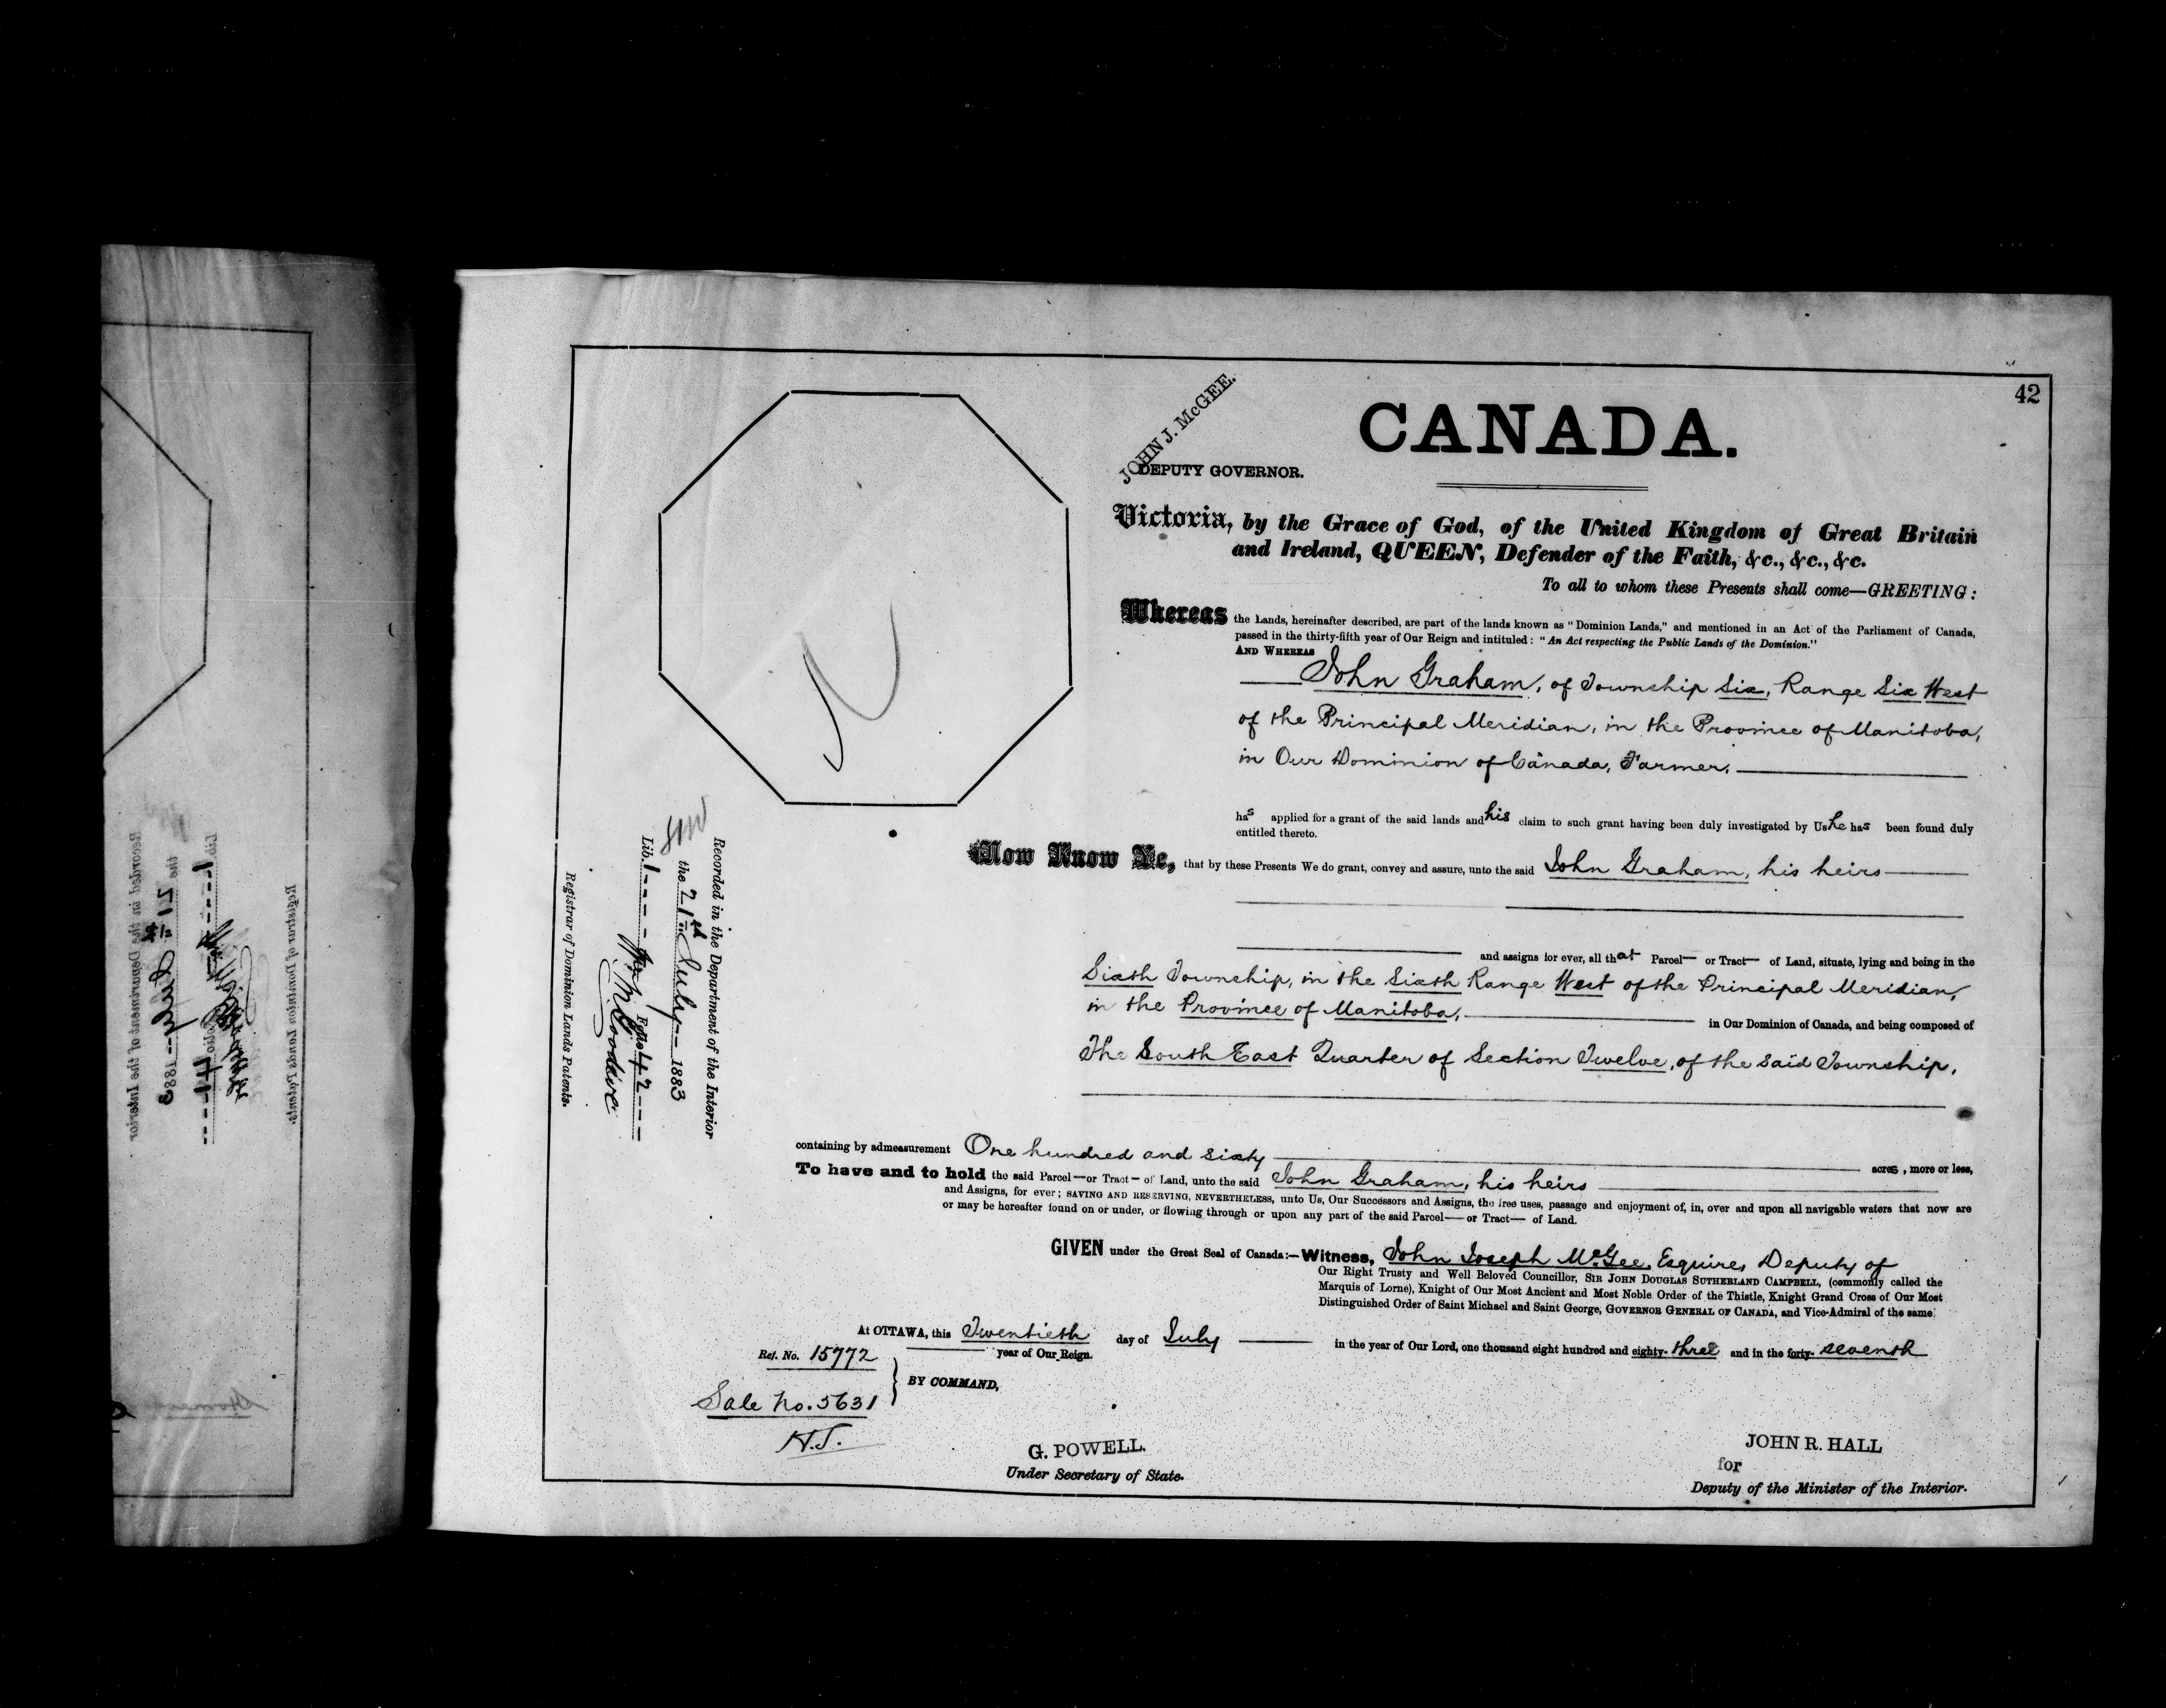 42
CANADA.
JOHN J. McGEE.
DEPUTY GOVERNOR.
Victoria, by the Grace of God, of the United Kingdom of Great Britain
and Ireland, QUEEN, Defender of the Faith, &c., &c., &c.
To all to whom these Presents shall come—GREETING:
Whereas the Lands, hereinafter described, are part of the lands known as "Dominion Lands," and mentioned in an Act of the Parliament of Canada,
passed in the thirty-fifth year of Our Reign and intituled: "An Act respecting the Public Lands of the Dominion."
AND WHEREAS
John Graham, of Township Six, Range Six West
of the Principal Meridian, in the Province of Manitoba,
in Our Dominion of Canada, Farmer,
has applied for a grant of the said lands and his claim to such grant having been duly investigated by Us he has been found duly
entitled thereto.
Now Know Ye, that by these Presents We do grant, convey and assure, unto the said John Graham, his heirs
and assigns for ever, all that Parcel— or Tract— of Land, situate, lying and being in the
Sixth Township, in the Sixth Range West of the Principal Meridian,
in the Province of Manitoba, in Our Dominion of Canada, and being composed of
The South East Quarter of Section Twelve, of the said Township,
containing by admeasurement One hundred and sixty acres, more or less,
To have and to hold the said Parcel—or Tract— of Land, unto the said John Graham, his heirs
and Assigns, for ever; SAVING AND RESERVING, NEVERTHELESS, unto Us, Our Successors and Assigns, the free uses, passage and enjoyment of, in, over and upon all navigable waters that now are
or may be hereafter found on or under, or flowing through or upon any part of the said Parcel—or Tract— of Land.
GIVEN under the Great Seal of Canada:—Witness, John Joseph McGee, Esquire, Deputy of
Our Right Trusty and Well Beloved Councillor, SIR JOHN DOUGLAS SUTHERLAND CAMPBELL, (commonly called the
Marquis of Lorne), Knight of Our Most Ancient and Most Noble Order of the Thistle, Knight Grand Cross of Our Most
Distinguished Order of Saint Michael and Saint George, GOVERNOR GENERAL OF CANADA, and Vice-Admiral of the same.
At OTTAWA, this Twentieth day of July in the year of Our Lord, one thousand eight hundred and eighty-three and in the forty-seventh
year of Our Reign.
Ref. No. 15772
BY COMMAND,
Sale No. 5631
H.J.
G. POWELL.
Under Secretary of State.
JOHN R. HALL
for
Deputy of the Minister of the Interior.
Recorded in the Department of the Interior
the 21st July 1883
Lib. 1 Folio 42
Registrar of Dominion Lands Patents.